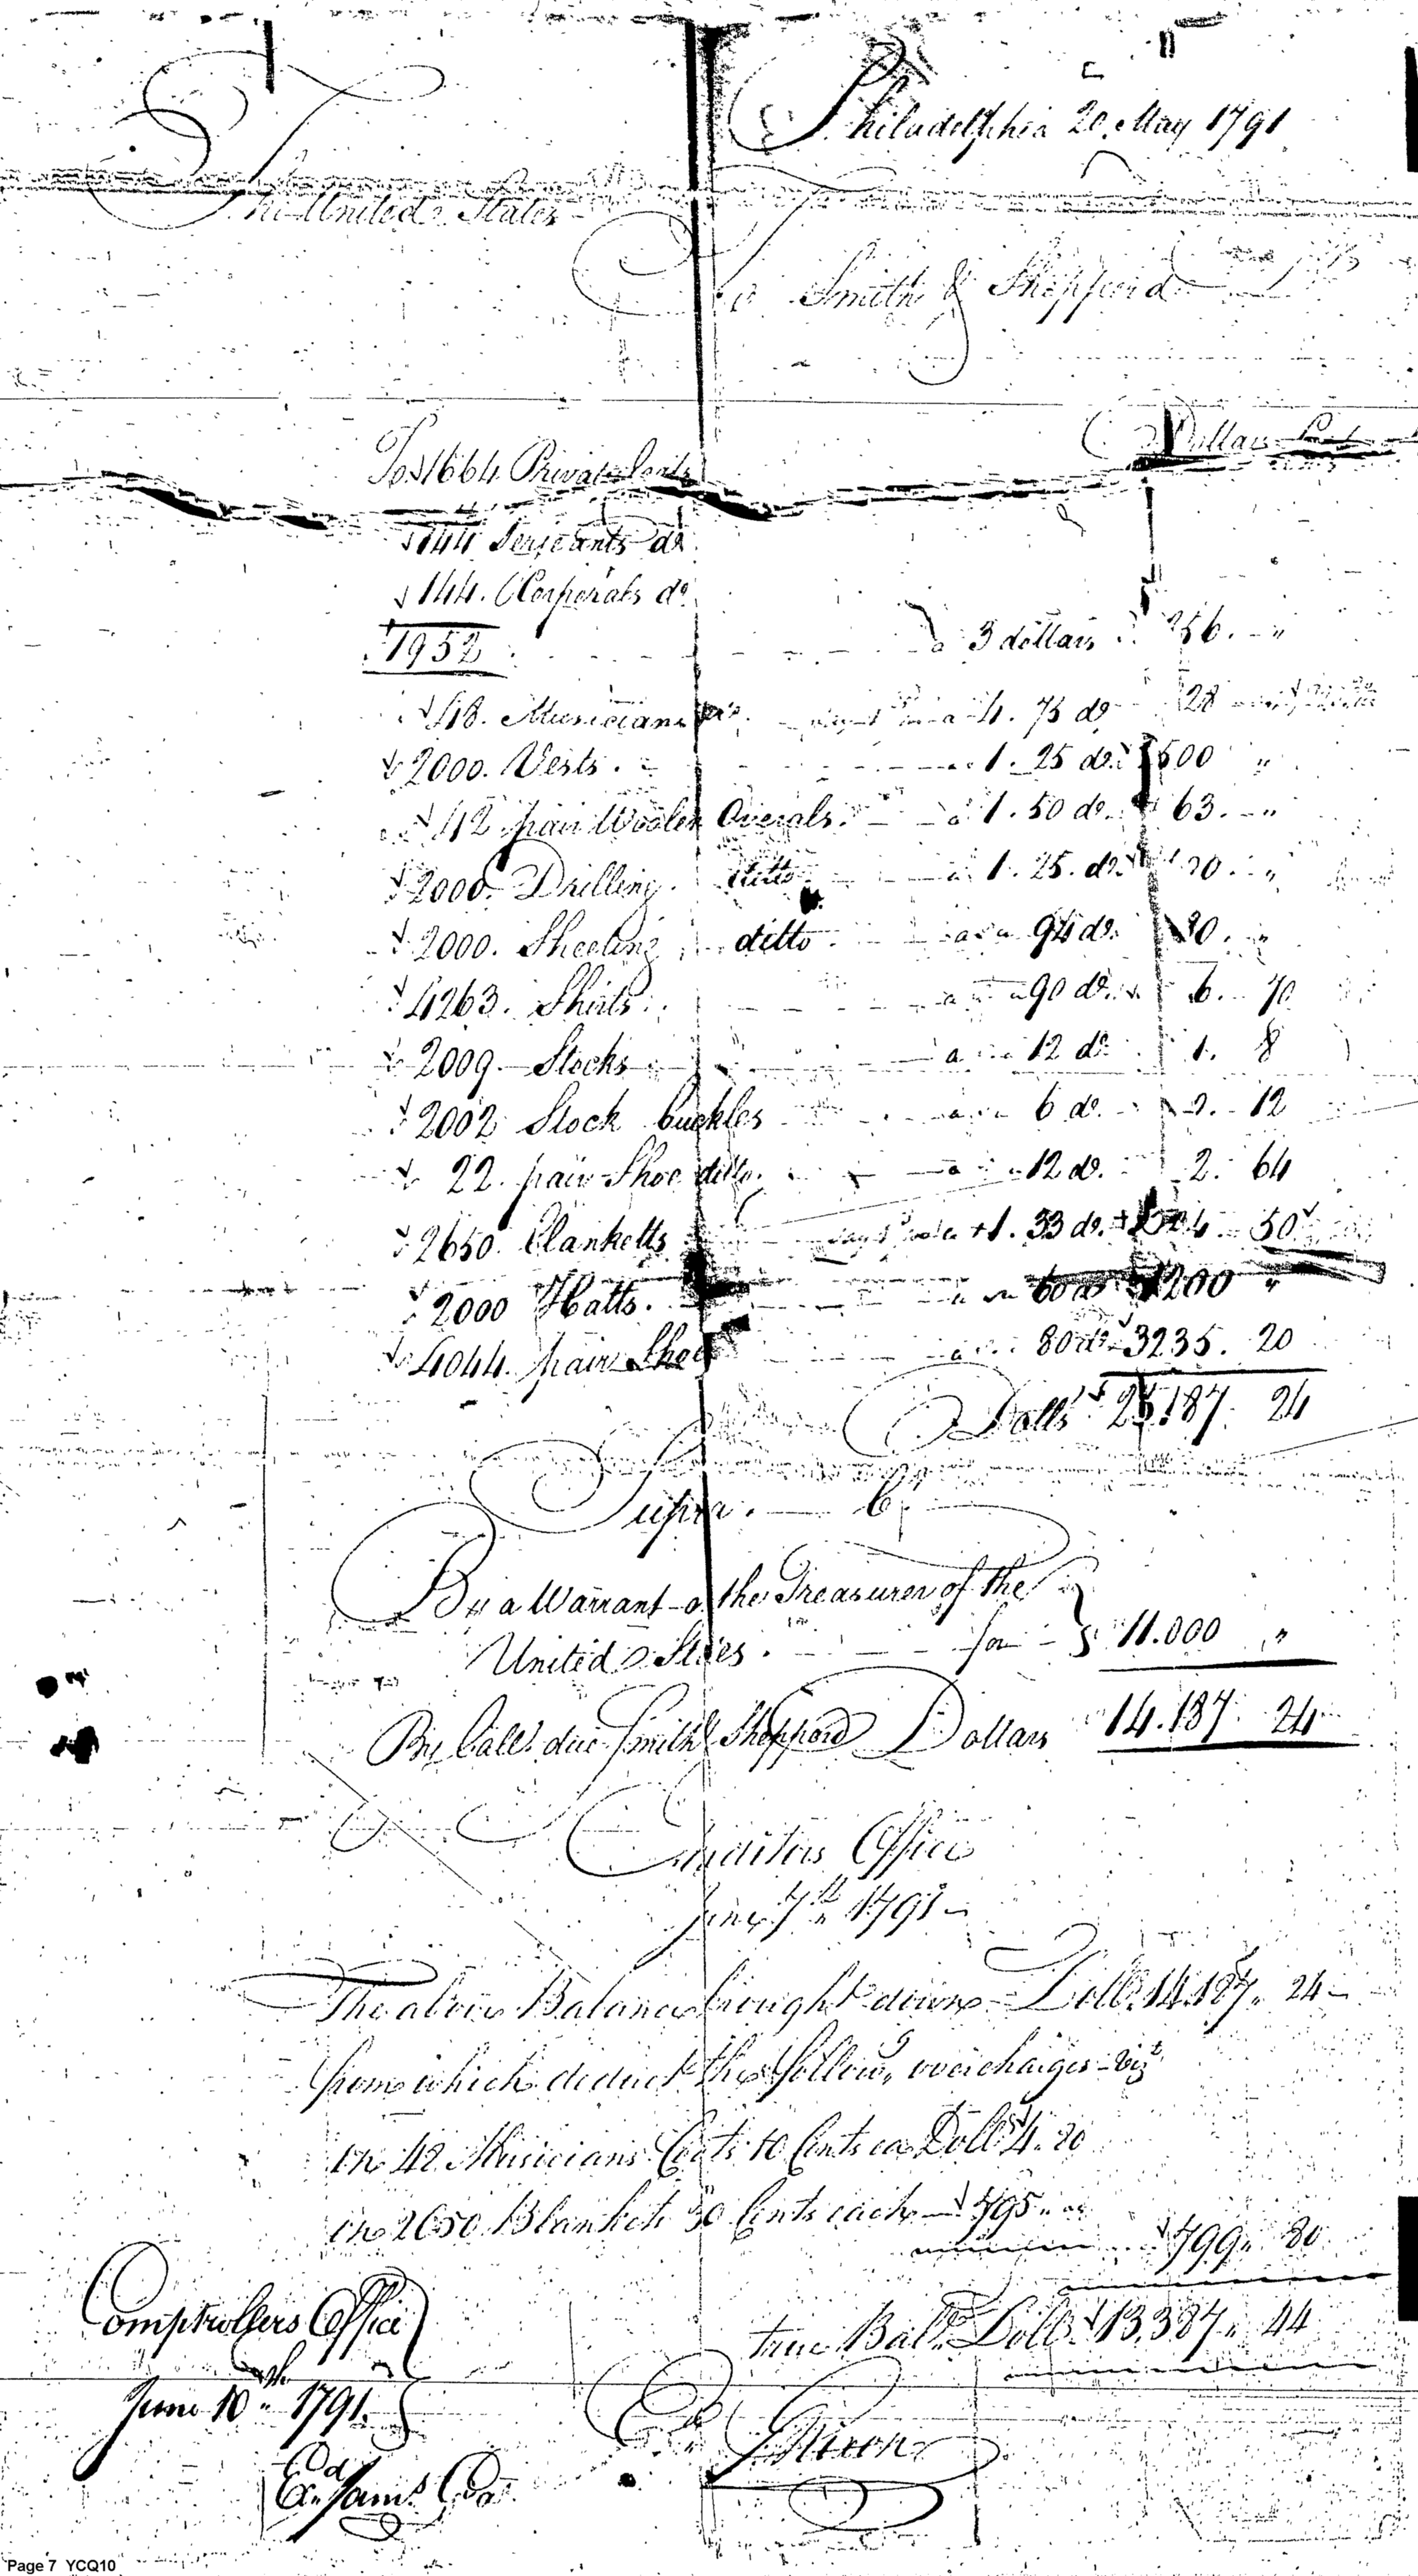 Philadelphia 20 May 1791
The United States
To Smith & Shepperd
Dollars Cents
To 1664 Private Coats
144 Serjeants do
144. Corporals do
1952 a 3 dollars 256. "
Musicians do a 4. 75 do 28
2000. Vests. 1. 25 do 500 "
42 pair Woolen Overals. a 1. 50 do 63. "
2000. Drilling ditto a 1. 25. do "
2000. Sheeting ditto a 94 do. "
4263. Shirts. a 90 do 6. 70
2009 Stocks a 12 do 1. 8
2002 Stock buckles a 6 do. 12
22. pair Shoe ditto. a 12 do. 2. 64
2650. Blanketts 1. 33 do. 4. 50
2000 Hatts. a 60 do 1200 "
4044. pair Shoes a 80 do 3235. 20
Dolls 25.187. 24
Supra. Cr
By a Warrant on the Treasurer of the
United States. for 11.000 "
By ball. due Smith & Shepperd Dollars 14.187. 24
Auditors Office
June 7th 1791
The above Balance brought down Dolls. 14.187. 24
from which deduct the follow.g overcharges Vizt
in 42 Musicians Coats 10 Cents ea Dolls 4. 20
in 2650 Blankets 30 Cents each 795
799. 80
true Balce. Dolls. 13,387. 44
Comptrollers Office
June 10th 1791.